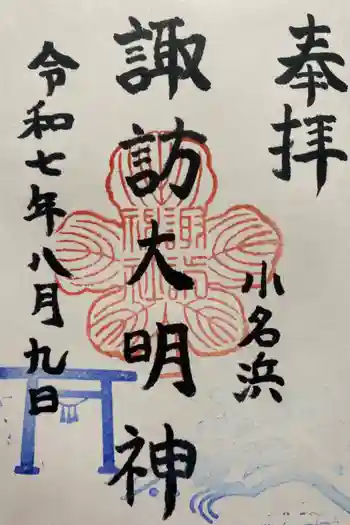 奉拝
小名浜
諏訪大明神
諏訪神社
令和七年八月九日